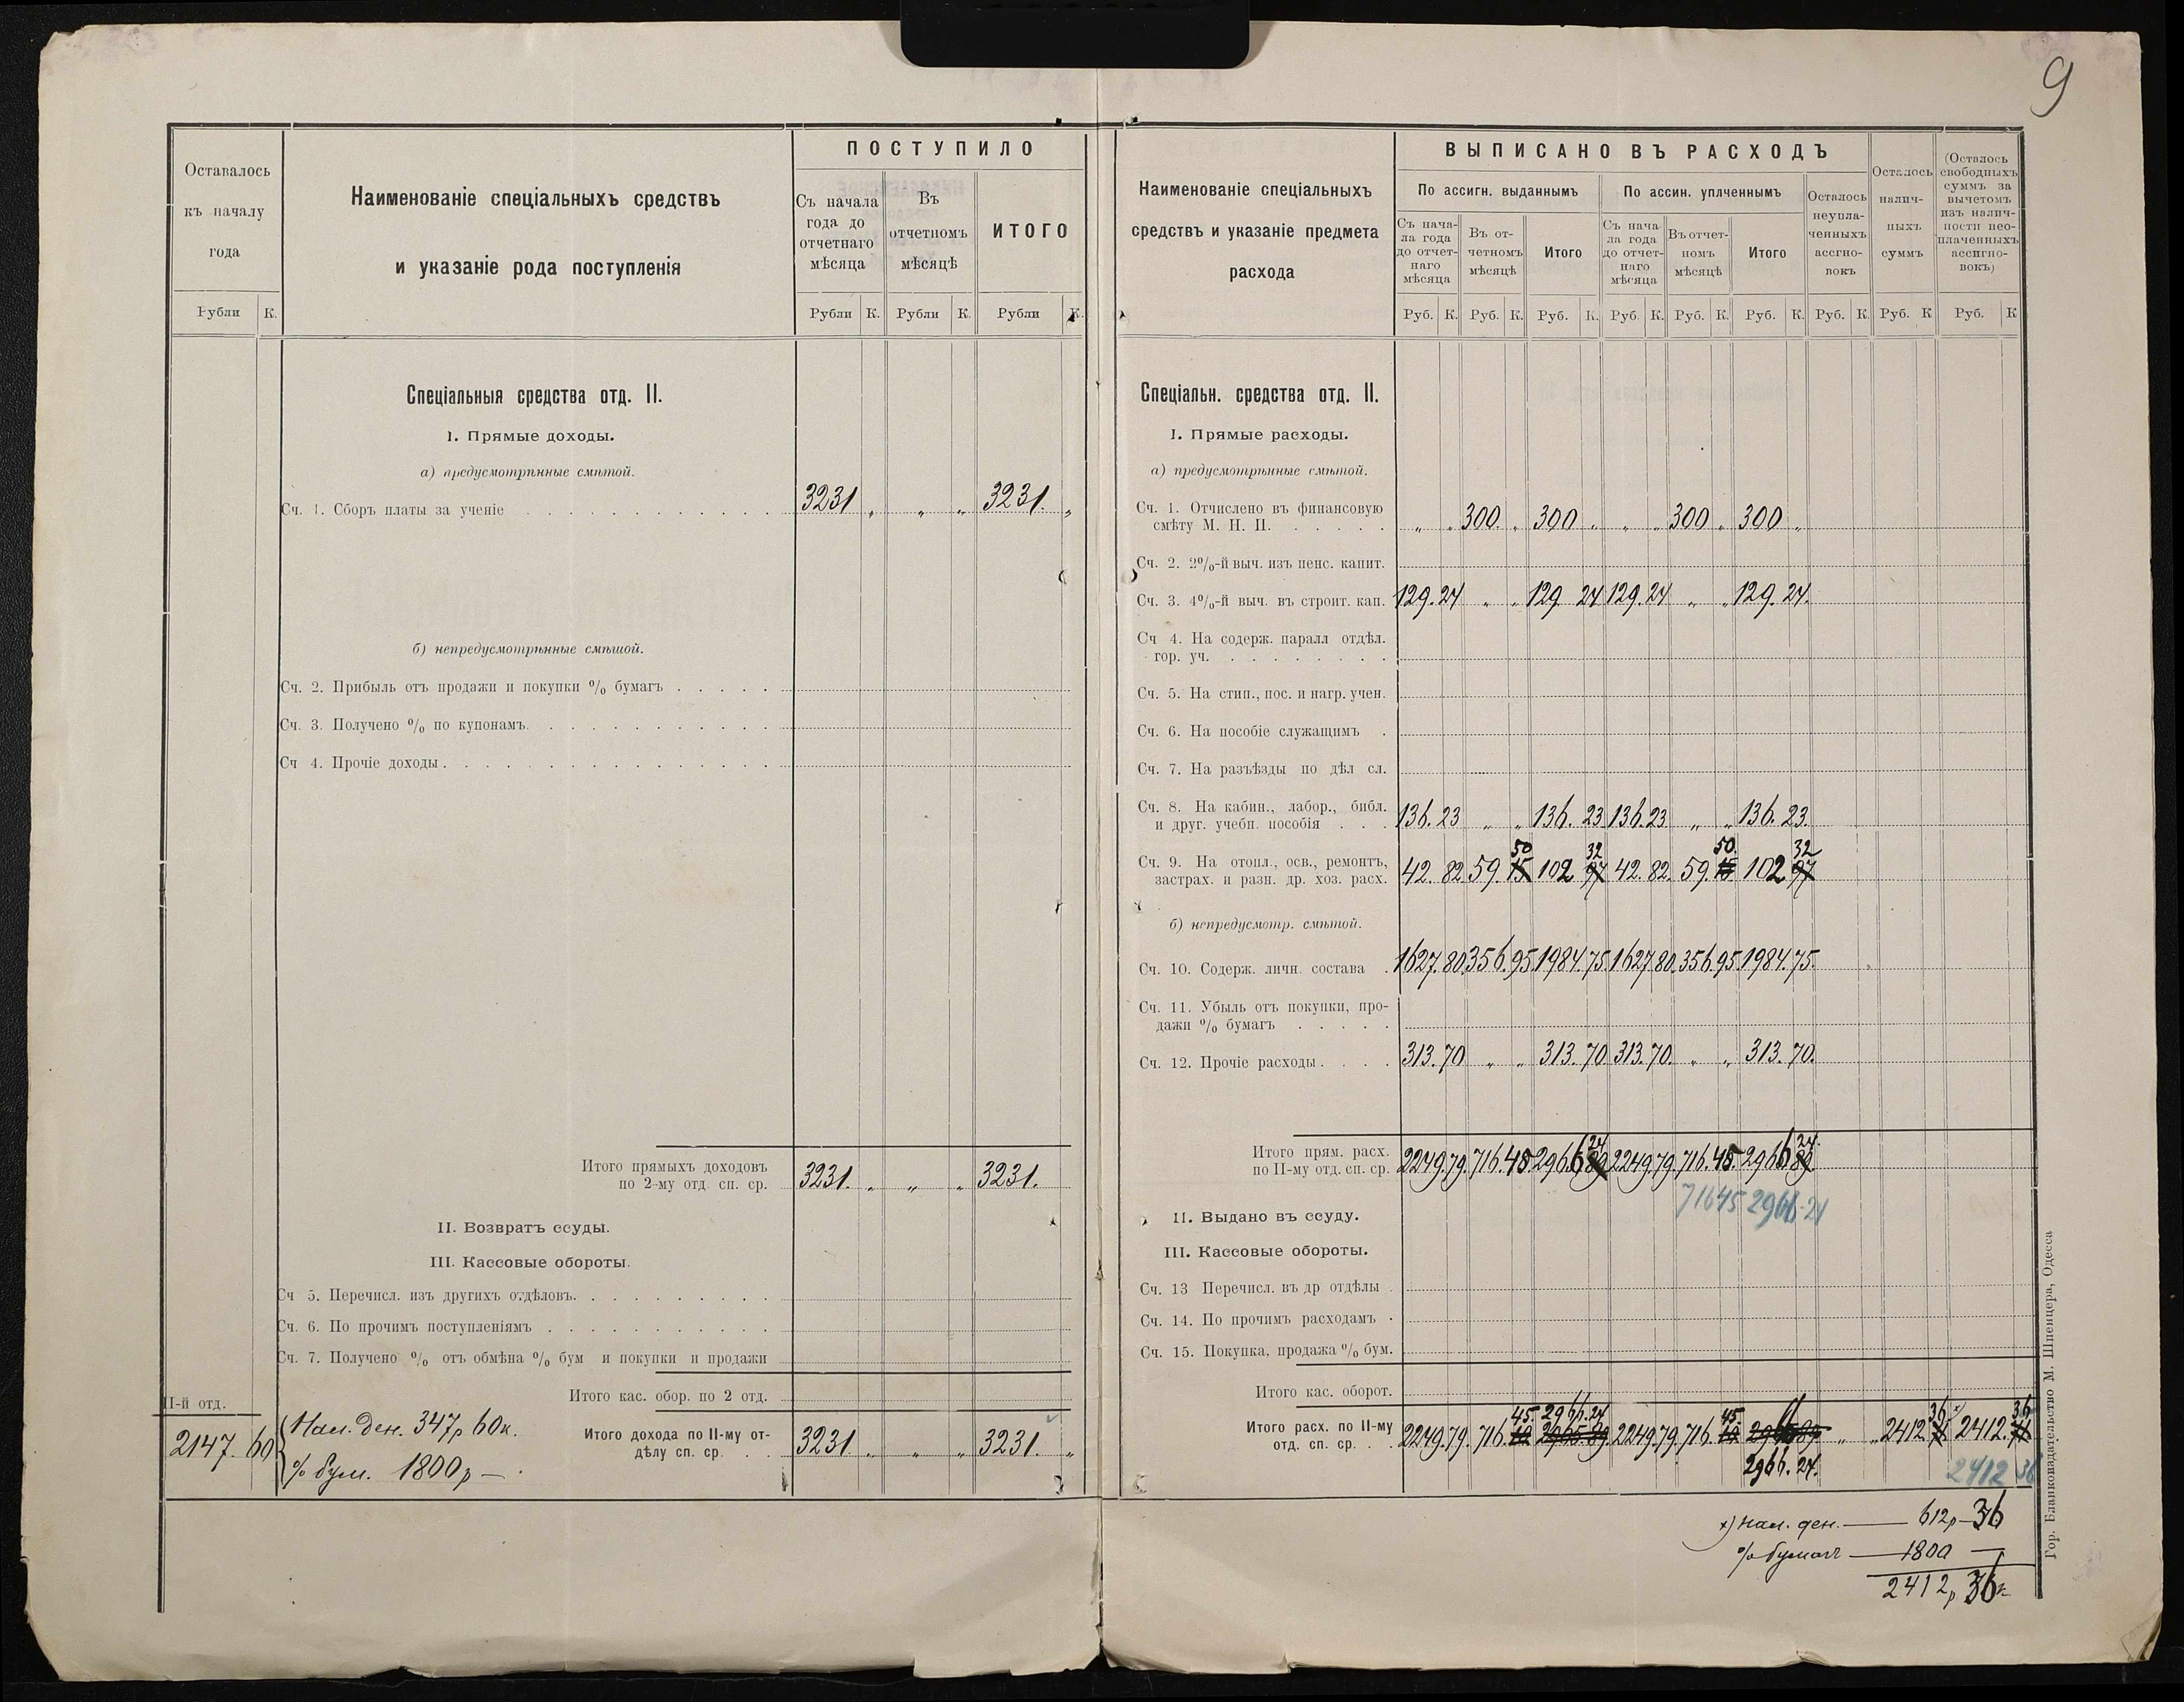 9
Оставалось
къ началу
года
Наименованіе спеціальныхъ средствъ
и указаніе рода поступленія
ПОСТУПИЛО
Съ начала
года до
отчетнаго
мѣсяца
Въ
отчетномъ
мѣсяцѣ
ИТОГО
Рубли К.
Рубли К. Рубли К. Рубли К.
Спеціальныя средства отд. II.
I. Прямые доходы.
а) предусмотрѣнные смѣтой.
Сч. 1. Сборъ платы за ученіе 3231 „ „ „ 3231. „
б) непредусмотрѣнные смѣтой.
Сч. 2. Прибыль отъ продажи и покупки % бумагъ
Сч. 3. Получено % по купонамъ.
Сч 4. Прочіе доходы
Итого прямыхъ доходовъ
по 2-му отд. сп. ср. 3231. „ „ „ 3231.
II. Возвратъ ссуды.
III. Кассовые обороты.
Сч 5. Перечисл. изъ другихъ отдѣловъ.
Сч. 6. По прочимъ поступленіямъ
Сч. 7. Получено % отъ обмѣна % бум и покупки и продажи
Итого кас. обор. по 2 отд.
II-й отд.
2147. 60
Нал. ден. 347р 60к.
% бум. 1800р —.
Итого дохода по II-му от-
дѣлу сп. ср. 3231. „ „ „ 3231. „
Наименованіе спеціальныхъ
средствъ и указаніе предмета
расхода
ВЫПИСАНО ВЪ РАСХОДЪ
По ассигн. выданнымъ
По ассин. уплченнымъ
Съ нача-
ла года
до отчет-
наго
мѣсяца
Въ от-
четномъ
мѣсяцѣ
Итого
Съ нача
ла года
до отчет-
наго
мѣсяца
Въ отчет-
номъ
мѣсяцѣ
Итого
Осталось
неупла-
ченныхъ
ассгно-
вокъ
Осталось
налич-
ныхъ
суммъ
(Осталось
свободныхъ
суммъ за
вычетомъ
изъ налич-
ности нео-
плаченныхъ
ассигно-
вокъ)
Руб. К. Руб. К. Руб. К. Руб. К. Руб. К. Руб. К. Руб. К. Руб. К Руб. К
Спеціальн. средства отд. II.
I. Прямые расходы.
а) предусмотрѣнные смѣтой.
Сч. 1. Отчислено въ финансовую
смѣту М. Н. П. „ „ 300. „ 300 „ „ „ 300 „ 300 „
Сч. 2. 2%-й выч. изъ пенс. капит.
Сч. 3. 4%-й выч. въ строит. кап. 129.24 „ „ 129 24 129.24 „ „ 129.24.
Сч 4. На содерж. паралл отдѣл.
гор. уч.
Сч. 5. На стип., пос. и нагр. учен.
Сч. 6. На пособіе служащимъ
Сч. 7. На разъѣзды по дѣл сл.
Сч. 8. На кабин., лабор., библ.
и друг. учебн. пособія 136.23 „ „ 136. 23 136.23 „ „ 136. 23.
50 32 50. 32
Сч. 9. На отопл., осв., ремонтъ,
застрах. и разн. др. хоз. расх. 42. 82 59. 15 102 97 42. 82. 59. 15 102 97
б) непредусмотр. смѣтой.
Сч. 10. Содерж. личн. состава 1627.80 356.95 1984.75 1627 80 356.95 1984.75.
Сч. 11. Убыль отъ покупки, про-
дажи % бумагъ
Сч. 12. Прочіе расходы 313.70 „ „ 313. 70 313.70. „ „ 313. 70.
24 24.
Итого прям. расх.
по II-му отд. сп. ср. 2249.79. 716.45 2966 89 2249.79 716.45. 2966 89
71645 2966.24
II. Выдано въ ссуду.
III. Кассовые обороты.
Сч. 13 Перечисл. въ др отдѣлы
Сч. 14. По прочимъ расходамъ
Сч. 15. Покупка, продажа % бум.
Итого кас. оборот.
45. 2966.24 45. 36 36
Итого расх. по II-му
отд. сп. ср. 2249.79. 716. 10 2965.89 2249.79. 716. 10 2965 89 „ „ 2412. 71 2412. 71
2966. 24.
2412 36
х) Нал. ден. — 612р — 36
% бумагъ — 1800 —
2412р 36к
Гор. Бланкоиздательство М. Шпенцера, Одесса